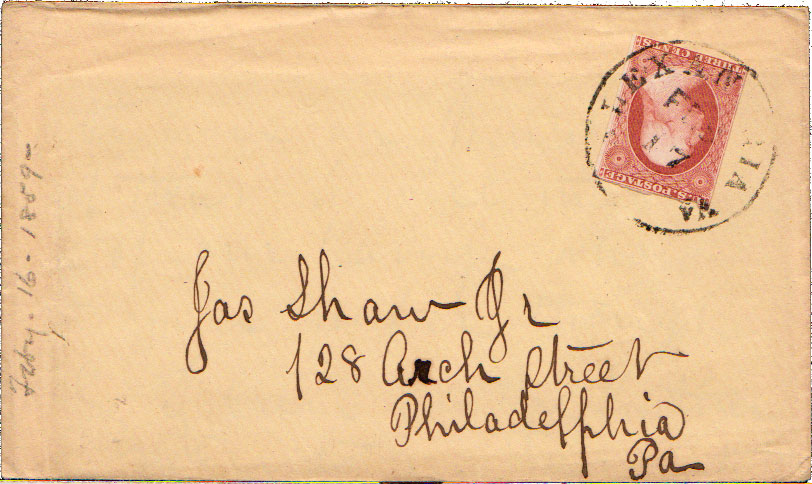 THREE CENTS
U.S. POSTAGE
ALEXANDRIA
FEB
17
VA
Jas Shaw Jr
128 Arch Street
Philadelphia
Pa
Feby. 16 - 1859 -